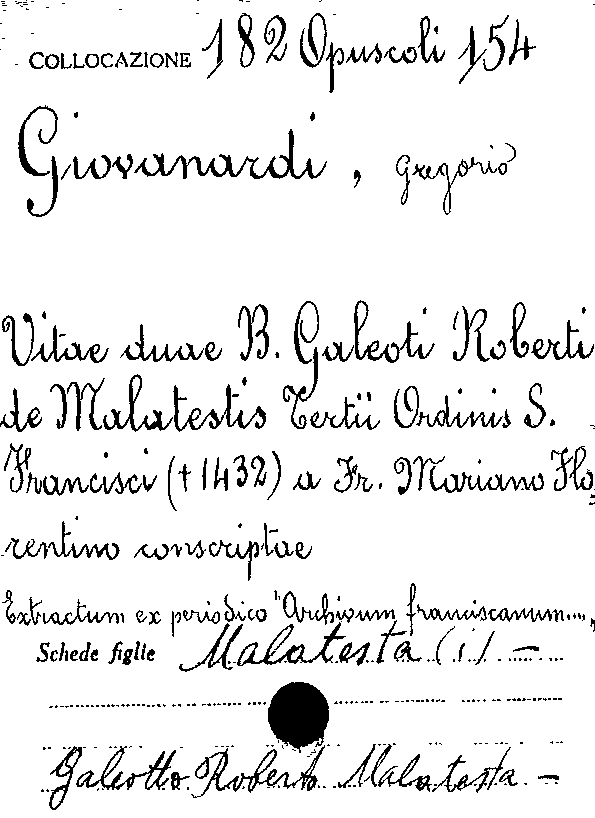 COLLOCAZIONE 182 Opuscoli 154
Giovanardi, Gregorio
Vitae duae B. Galeoti Roberti
de Malatestis Tertii Ordinis S.
Francisci († 1432) a Fr. Mariano Flo=
rentino conscriptae
Extractum ex periodico "Archivum franciscanum....,,
Schede figlie Malatesta (i) –
Galeotto Roberto Malatesta –